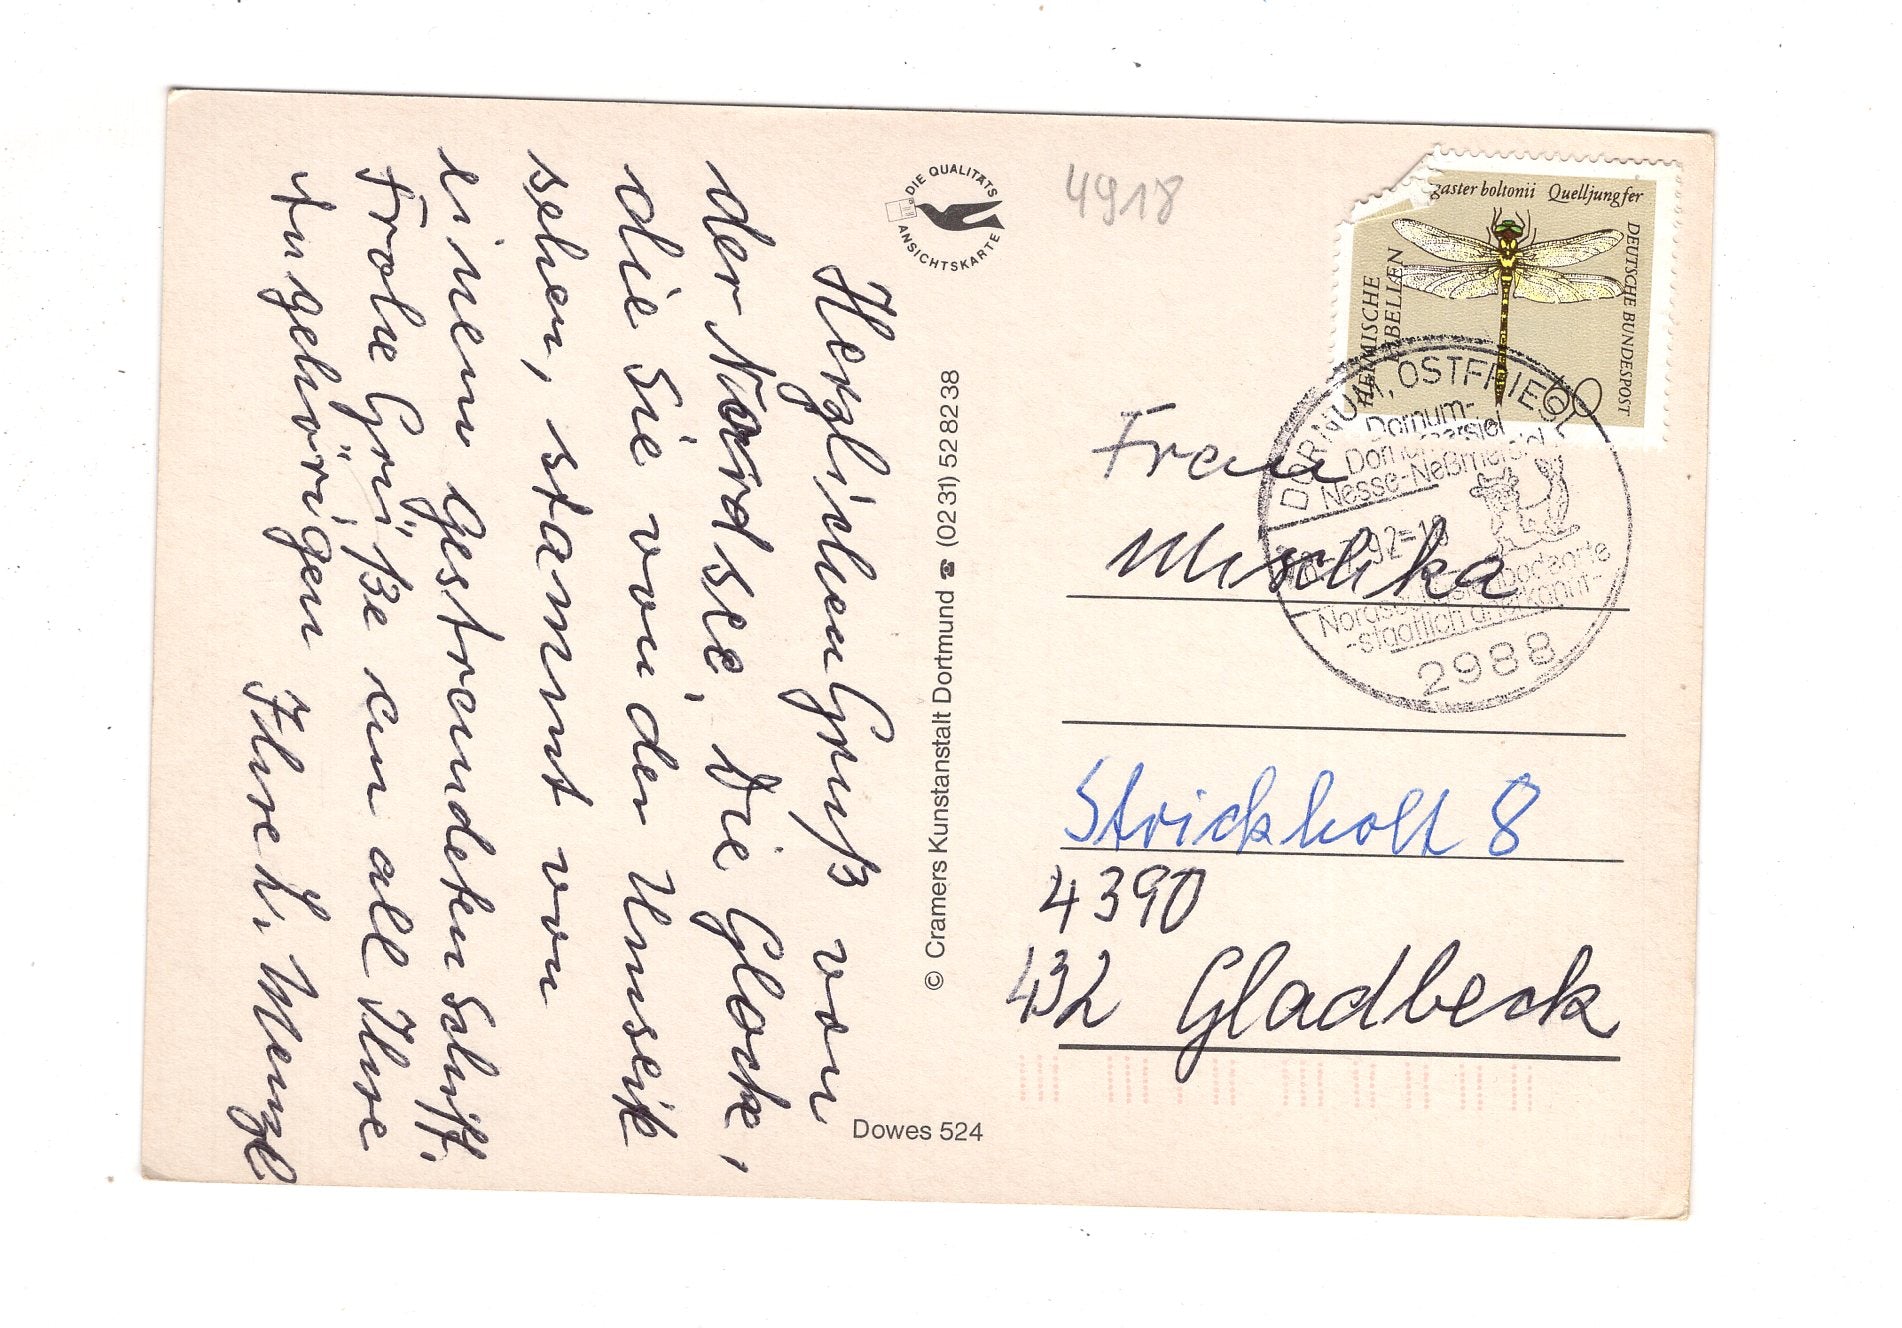 Herzlichen Gruß von
der Nordsee. Die Glocke,
die Sie vor der Umseik
sehen, stammt von
einem gestrandeten Schiff.
Frohe Grüße an all Ihre
Angehörigen Ihre L. Menzel
DIE QUALITÄTS
ANSICHTSKARTE
© Cramers Kunstanstalt Dortmund ☎ (02 31) 52 82 38
Dowes 524
4918
gaster boltonii Quelljungfer
HEIMISCHE
LIBELLEN
DEUTSCHE BUNDESPOST
60
DORNUM, OSTFRIESL
Dornum-
Dornumersiel
Nesse-Neßmersiel
92-18
staatlich anerkannt-
2988
Frau
Mischka
Strickholt 8
4390
432 Gladbeck